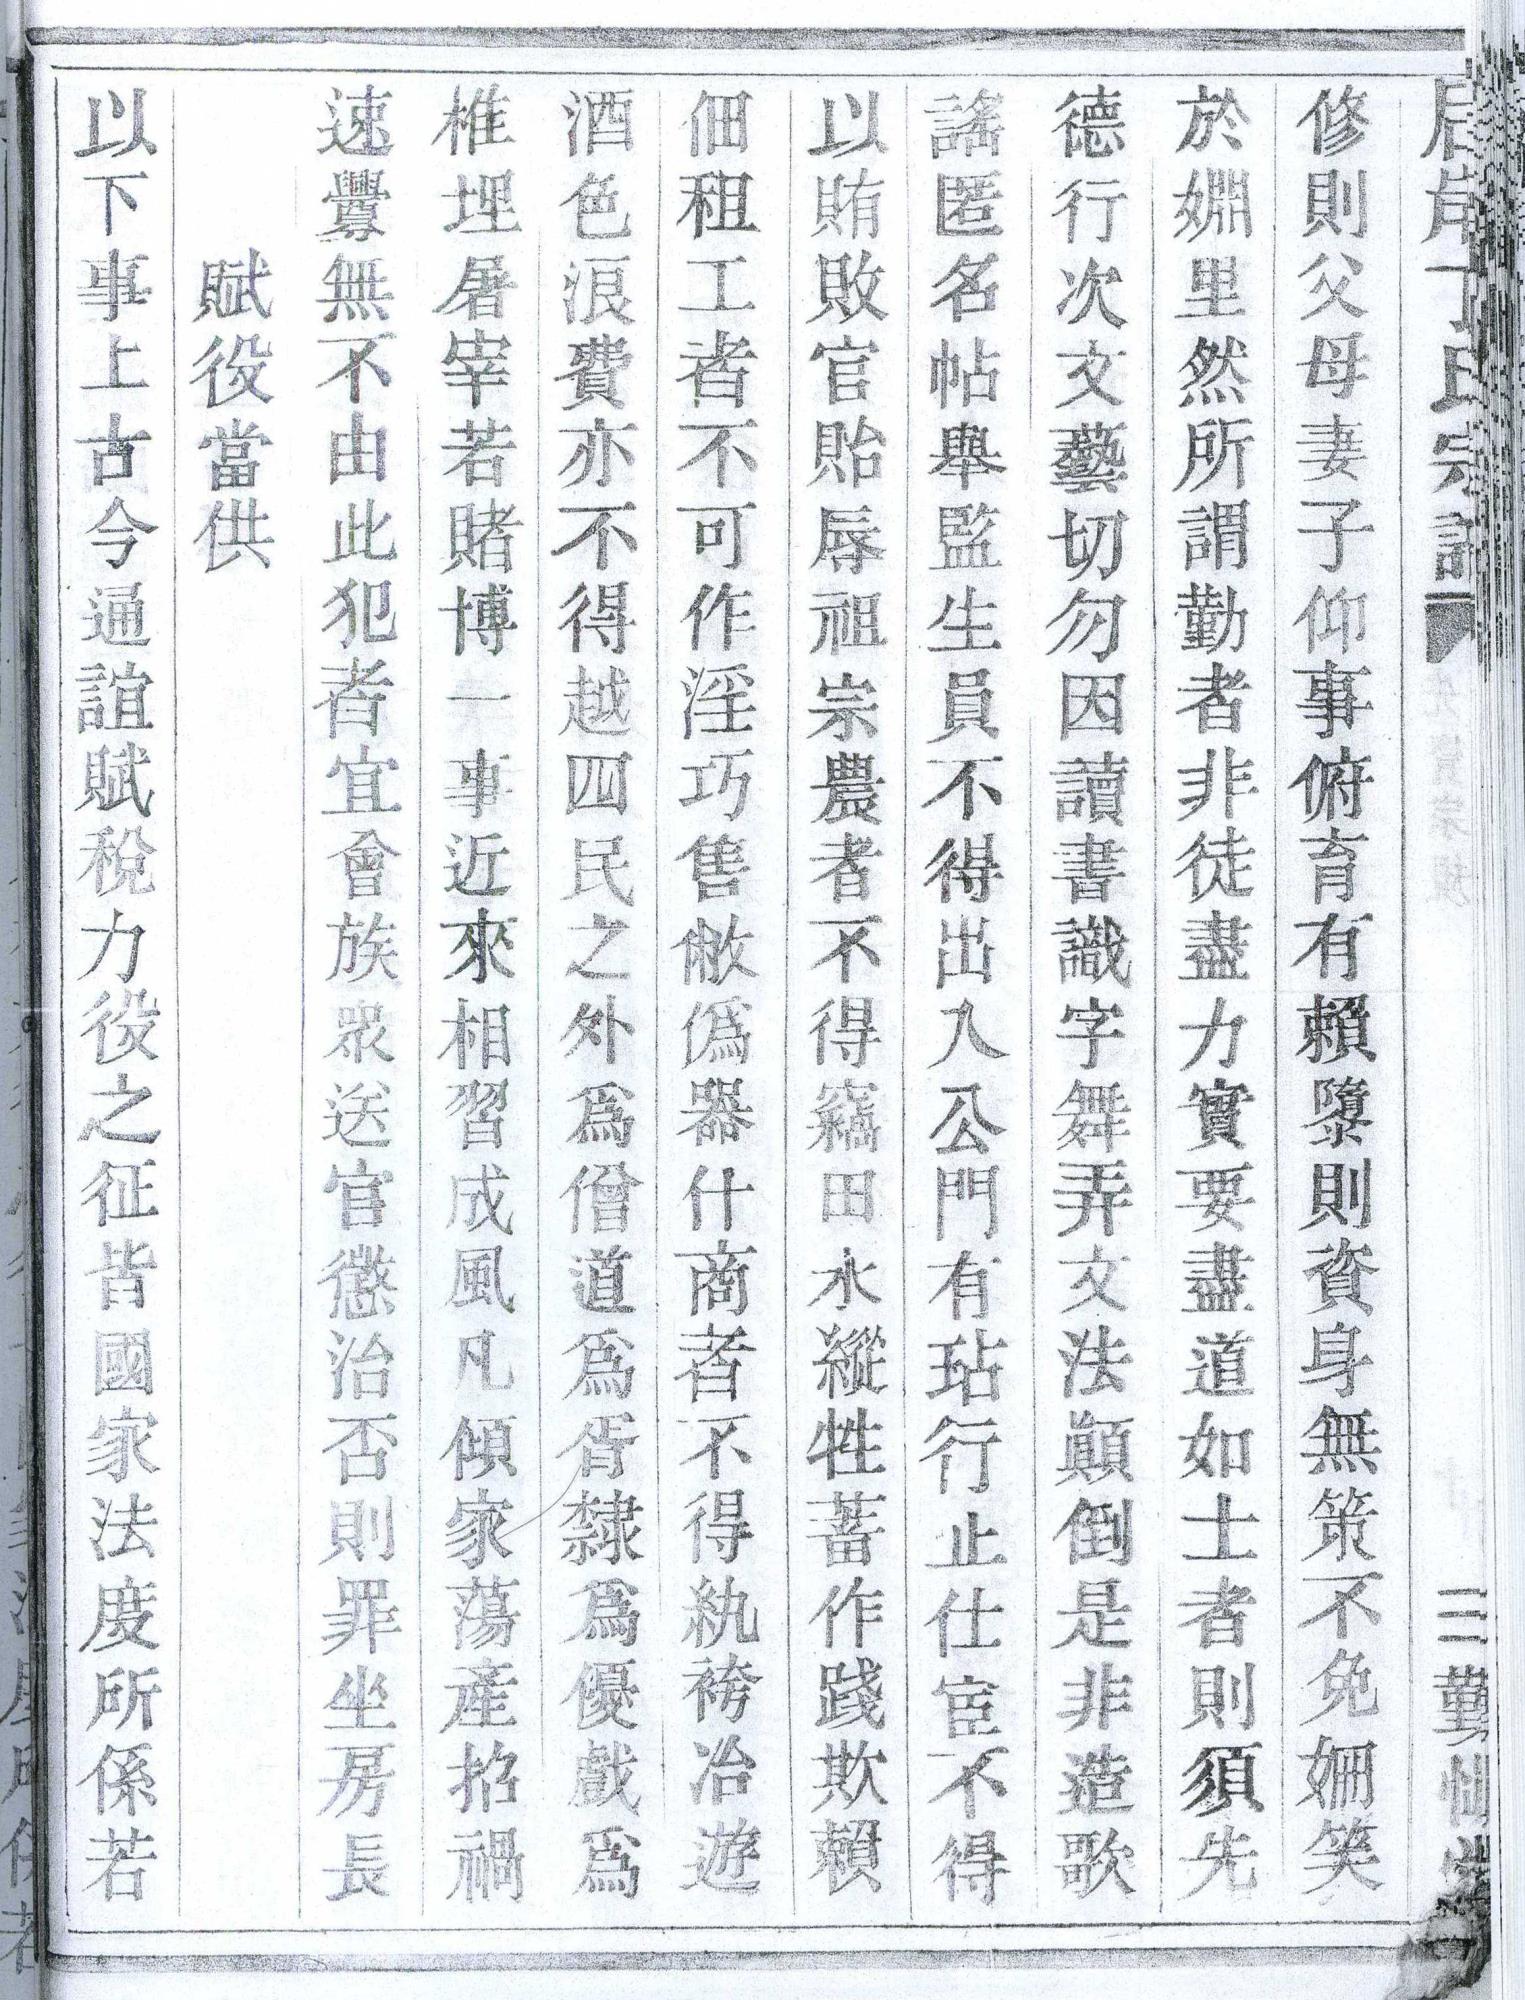 丁氏宗譜
三勤
修則父母妻子仰事俯育有賴隳則資身無策不免姍笑
於婣里然所謂勤者非徒盡力實要盡道如士者則須先
德行次文藝切勿因讀書識字舞弄文法顛倒是非造歌
謠匿名帖舉監生員不得出入公門有玷行止仕宦不得
以賄敗官貽辱祖宗農者不得竊田水縱牲蓄作踐欺賴
佃租工者不可作淫巧售敝偽器什商者不得紈袴冶遊
酒色浪費亦不得越四民之外爲僧道爲胥隸爲優戲爲
椎埋屠宰若賭博一事近來相習成風凡傾家蕩產招禍
速釁無不由此犯者宜會族眾送官懲治否則罪坐房長
賦役當供
以下事上古今通誼賦稅力役之征皆國家法度所係若